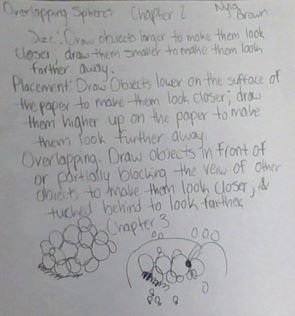 Overlapping Spheres Chapter 2 Nyia Brown
Size: Draw objects larger to make them look
closer; draw them smaller to make them look
farther away.
Placement: Draw Objects lower on the surface of
the paper to make them look closer; draw
them higher up on the paper to make
them look further away
Overlapping: Draw objects in front of
or partially blocking the veiw of other
objects to make them look closer; &
tucked behind to look farther.
Chapter 3